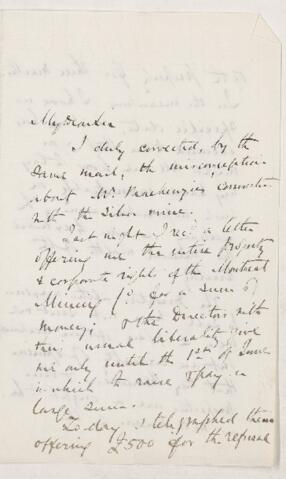 My dear Sir
I duly corrected, by the
same mail, the misconception
about Mr. Mackenzie's connection
with the Silver mine.
Last night I recd a letter
offering me the entire property
& corporate rights of the Montreal
Mining Co for a sum of
money; & the Directors with
their usual liberality give
me only until the 1st of June
in which to raise & pay a
large sum.
To-day I telegraphed them
offering £500 for the refusal